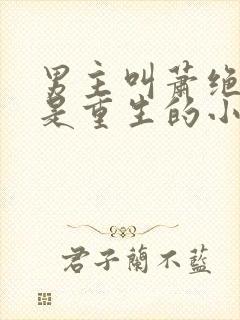 男主叫萧绝
是重生的小
君子蘭不藍